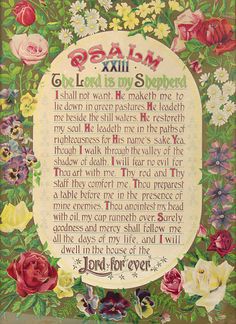 PSALM
XXIII
The Lord is my Shepherd
I shall not want. He maketh me to
lie down in green pastures. He leadeth
me beside the still waters. He restoreth
my soul. He leadeth me in the paths of
righteousness for His name's sake. Yea,
though I walk through the valley of the
shadow of death, I will fear no evil for
Thou art with me. Thy rod and Thy
staff they comfort me. Thou preparest
a table before me in the presence of
mine enemies. Thou anointest my head
with oil, my cup runneth over. Surely
goodness and mercy shall follow me
all the days of my life, and I will
dwell in the house of the
Lord for ever.